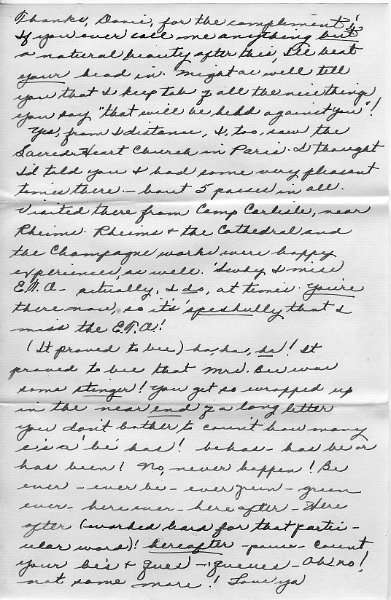 Thanks, Dovie, for the compliment!
If you ever call me anything but
a natural beauty after this, I'll beat
your head in. Might as well tell
you that I keep tab of all the nice things
you say "that will be held against you"!
Yes, from a distance, I, too, saw the
Sacred Heart Church in Paris. I thought
I'd told you I had some very pleasant
times there. - bout 5 passes in all.
Visited there from Camp Carlisle, near
Rheims. Rheims & the Cathedral and
the Champagne works were happy
experiences, as well. 'Swhy I miss
E.T.O. - actually, I do, at times. You're
there now, so it's 'specshully that I
miss the E.T.O.!
(It proved to bee) ha, ha, ha! It
proved to bee that Mrs. Bee was
some stinger! You get so wrapped up
in the near end of a long letter
you don't bother to count how many
e's a 'be' has! behas - has be or
has been! No, never happen! Be
ever - ever be - evergreen - green
ever - here ever - here after - Here
after (worked hard for that partic-
ular word)! hereafter - pause - count
your be's & ques - queues - Oh no!
not some more! Love ya